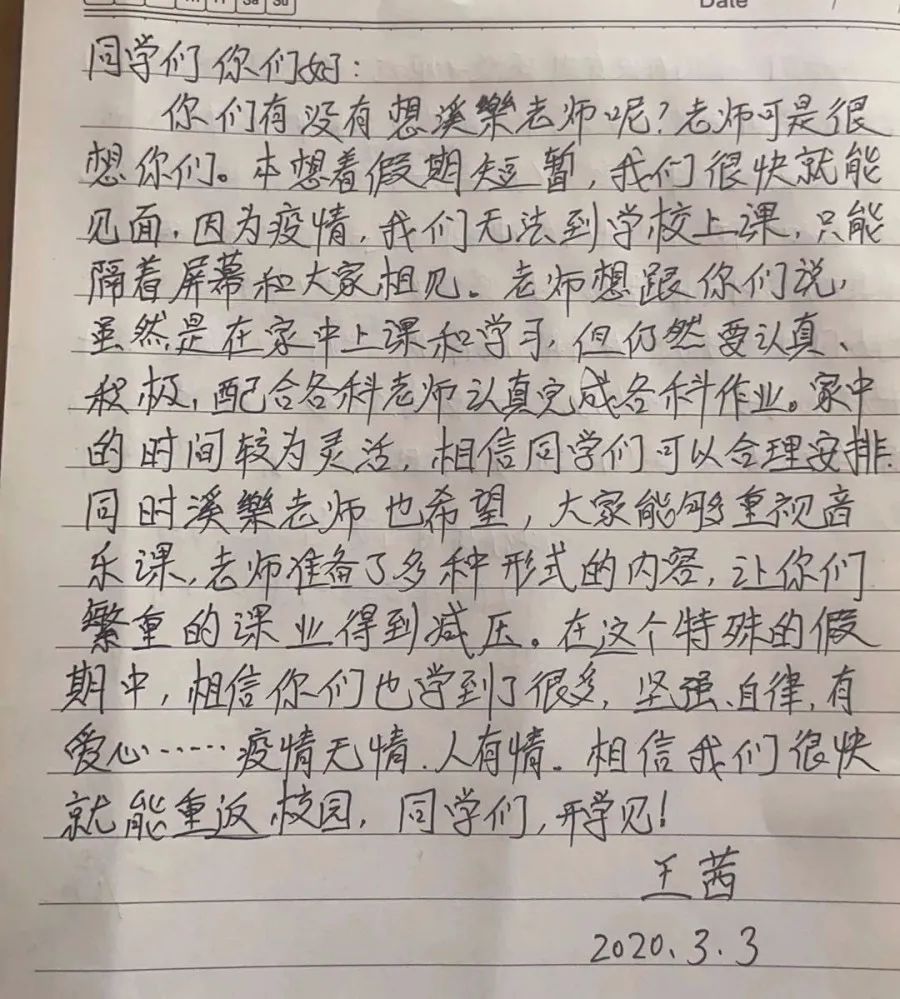 Sa Su
Date
同学们你们好：
你们有没有想溪樂老师呢？老师可是很
想你们。本想着假期短暂，我们很快就能
见面，因为疫情，我们无法到学校上课，只能
隔着屏幕和大家相见。老师想跟你们说，
虽然是在家中上课和学习，但仍然要认真、
积极，配合各科老师认真完成各科作业。家中
的时间较为灵活，相信同学们可以合理安排.
同时溪樂老师也希望，大家能够重视音
乐课，老师准备了多种形式的内容，让你们
繁重的课业得到减压。在这个特殊的假
期中，相信你们也学到了很多，坚强、自律，有
爱心……疫情无情、人有情。相信我们很快
就能重返校园，同学们，开学见！
王茜
2020.3.3